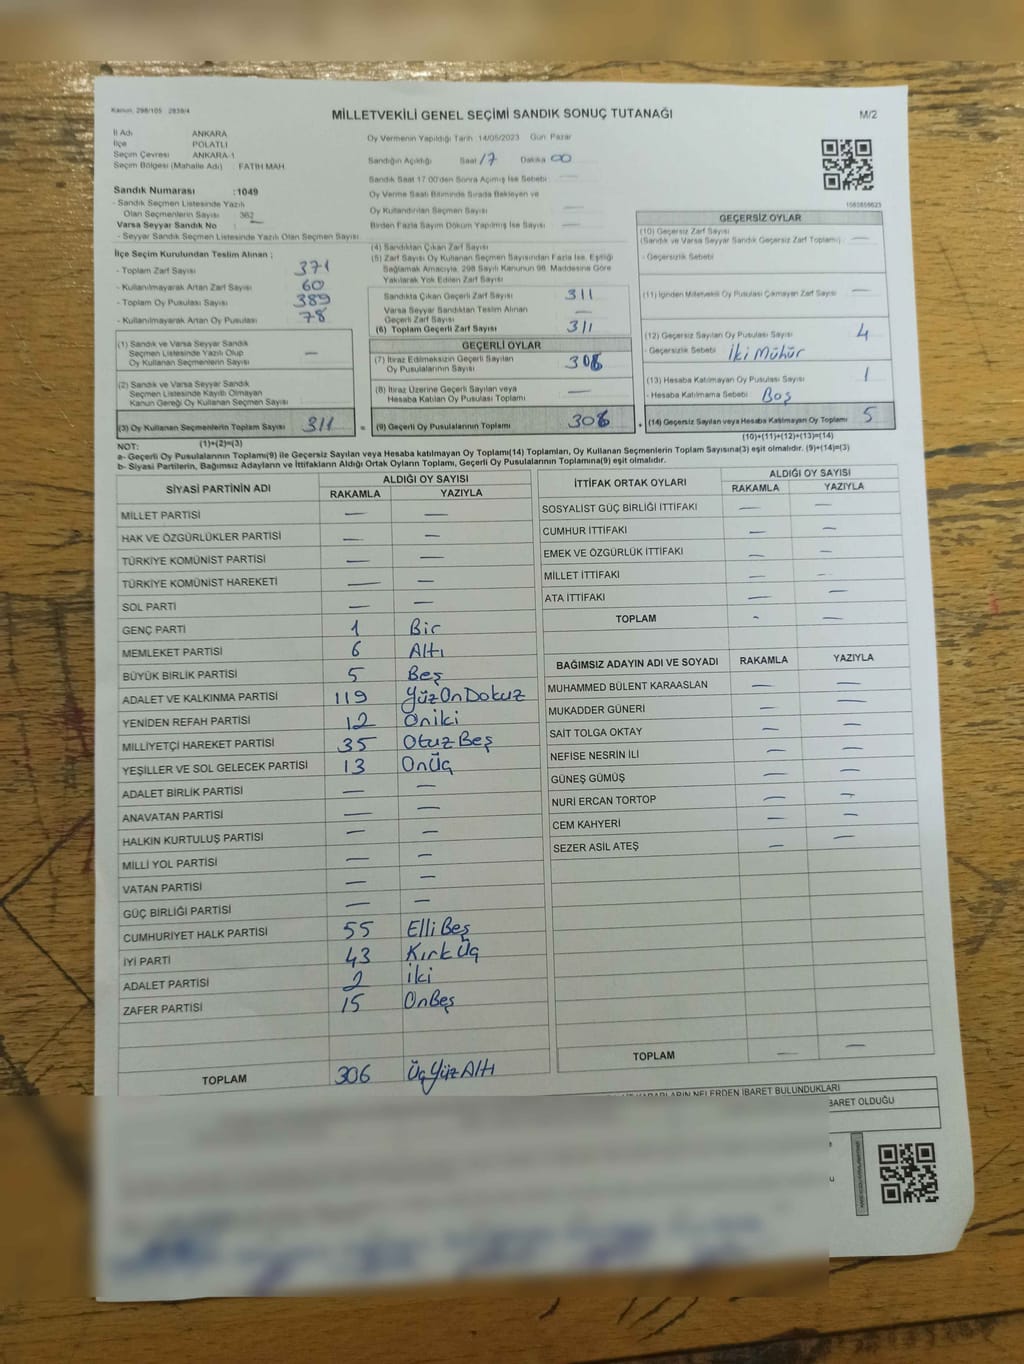 Kanun: 298/105 : 2839/4
MİLLETVEKİLİ GENEL SEÇİMİ SANDIK SONUÇ TUTANAĞI
M/2
İl Adı ANKARA
İlçe POLATLI
Seçim Çevresi ANKARA-1
Seçim Bölgesi (Mahalle Adı) : FATİH MAH.
Sandık Numarası :1049
- Sandık Seçmen Listesinde Yazılı
Olan Seçmenlerin Sayısı : 362
Varsa Seyyar Sandık No :
- Seyyar Sandık Seçmen Listesinde Yazılı Olan Seçmen Sayısı
Oy Vermenin Yapıldığı Tarih: 14/05/2023 Gün: Pazar
Sandığın Açıldığı Saat 17 Dakika 00
Sandık Saat 17.00'den Sonra Açılmış İse Sebebi : —
Oy Verme Saati Bitiminde Sırada Bekleyen ve
Oy Kullandırılan Seçmen Sayısı : —
Birden Fazla Sayım Döküm Yapılmış İse Sayısı : —
İlçe Seçim Kurulundan Teslim Alınan ;
- Toplam Zarf Sayısı 371
- Kullanılmayarak Artan Zarf Sayısı 60
- Toplam Oy Pusulası Sayısı 389
- Kullanılmayarak Artan Oy Pusulası 78
(1) Sandık ve Varsa Seyyar Sandık
Seçmen Listesinde Yazılı Olup
Oy Kullanan Seçmenlerin Sayısı —
(2) Sandık ve Varsa Seyyar Sandık
Seçmen Listesinde Kayıtlı Olmayan
Kanun Gereği Oy Kullanan Seçmen Sayısı
(3) Oy Kullanan Seçmenlerin Toplam Sayısı 311 =
(1)+(2)=(3)
(4) Sandıktan Çıkan Zarf Sayısı
(5) Zarf Sayısı Oy Kullanan Seçmen Sayısından Fazla İse, Eşitliği
Sağlamak Amacıyla, 298 Sayılı Kanunun 98. Maddesine Göre
Yakılarak Yok Edilen Zarf Sayısı
Sandıkta Çıkan Geçerli Zarf Sayısı 311
Varsa Seyyar Sandıktan Teslim Alınan
Geçerli Zarf Sayısı —
(6) Toplam Geçerli Zarf Sayısı 311
GEÇERLİ OYLAR
(7) İtiraz Edilmeksizin Geçerli Sayılan
Oy Pusulalarının Sayısı 306
(8) İtiraz Üzerine Geçerli Sayılan veya
Hesaba Katılan Oy Pusulası Toplamı —
(9) Geçerli Oy Pusulalarının Toplamı 306 +
1080806623
GEÇERSİZ OYLAR
(10) Geçersiz Zarf Sayısı
(Sandık ve Varsa Seyyar Sandık Geçersiz Zarf Toplamı) —
- Geçersizlik Sebebi
(11) İçinden Milletvekili Oy Pusulası Çıkmayan Zarf Sayısı —
(12) Geçersiz Sayılan Oy Pusulası Sayısı 4
- Geçersizlik Sebebi İki Mühür
(13) Hesaba Katılmayan Oy Pusulası Sayısı 1
- Hesaba Katılmama Sebebi Boş
(14) Geçersiz Sayılan veya Hesaba Katılmayan Oy Toplamı 5
(10)+(11)+(12)+(13)=(14)
NOT:
a- Geçerli Oy Pusulalarının Toplamı(9) ile Geçersiz Sayılan veya Hesaba katılmayan Oy Toplamı(14) Toplamları, Oy Kullanan Seçmenlerin Toplam Sayısına(3) eşit olmalıdır. (9)+(14)=(3)
b- Siyasi Partilerin, Bağımsız Adayların ve İttifakların Aldığı Ortak Oyların Toplamı, Geçerli Oy Pusulalarının Toplamına(9) eşit olmalıdır.
SİYASİ PARTİNİN ADI ALDIĞI OY SAYISI
RAKAMLA YAZIYLA
MİLLET PARTİSİ — —
HAK VE ÖZGÜRLÜKLER PARTİSİ — —
TÜRKİYE KOMÜNİST PARTİSİ — —
TÜRKİYE KOMÜNİST HAREKETİ — —
SOL PARTİ — —
GENÇ PARTİ 1 Bir
MEMLEKET PARTİSİ 6 Altı
BÜYÜK BİRLİK PARTİSİ 5 Beş
ADALET VE KALKINMA PARTİSİ 119 YüzOnDokuz
YENİDEN REFAH PARTİSİ 12 Oniki
MİLLİYETÇİ HAREKET PARTİSİ 35 OtuzBeş
YEŞİLLER VE SOL GELECEK PARTİSİ 13 OnÜç
ADALET BİRLİK PARTİSİ — —
ANAVATAN PARTİSİ — —
HALKIN KURTULUŞ PARTİSİ — —
MİLLİ YOL PARTİSİ — —
VATAN PARTİSİ — —
GÜÇ BİRLİĞİ PARTİSİ — —
CUMHURİYET HALK PARTİSİ 55 ElliBeş
İYİ PARTİ 43 KırkÜç
ADALET PARTİSİ 2 İki
ZAFER PARTİSİ 15 OnBeş
TOPLAM 306 ÜçYüzAltı
İTTİFAK ORTAK OYLARI ALDIĞI OY SAYISI
RAKAMLA YAZIYLA
SOSYALİST GÜÇ BİRLİĞİ İTTİFAKI — —
CUMHUR İTTİFAKI — —
EMEK VE ÖZGÜRLÜK İTTİFAKI — —
MİLLET İTTİFAKI — —
ATA İTTİFAKI — —
TOPLAM - —
BAĞIMSIZ ADAYIN ADI VE SOYADI RAKAMLA YAZIYLA
MUHAMMED BÜLENT KARAASLAN — —
MUKADDER GÜNERİ — —
SAİT TOLGA OKTAY — —
NEFİSE NESRİN İLİ — —
GÜNEŞ GÜMÜŞ — —
NURİ ERCAN TORTOP — —
CEM KAHYERİ — —
SEZER ASİL ATEŞ — —
TOPLAM — —
KARARLARIN NELERDEN İBARET BULUNDUKLARI
İBARET OLDUĞU